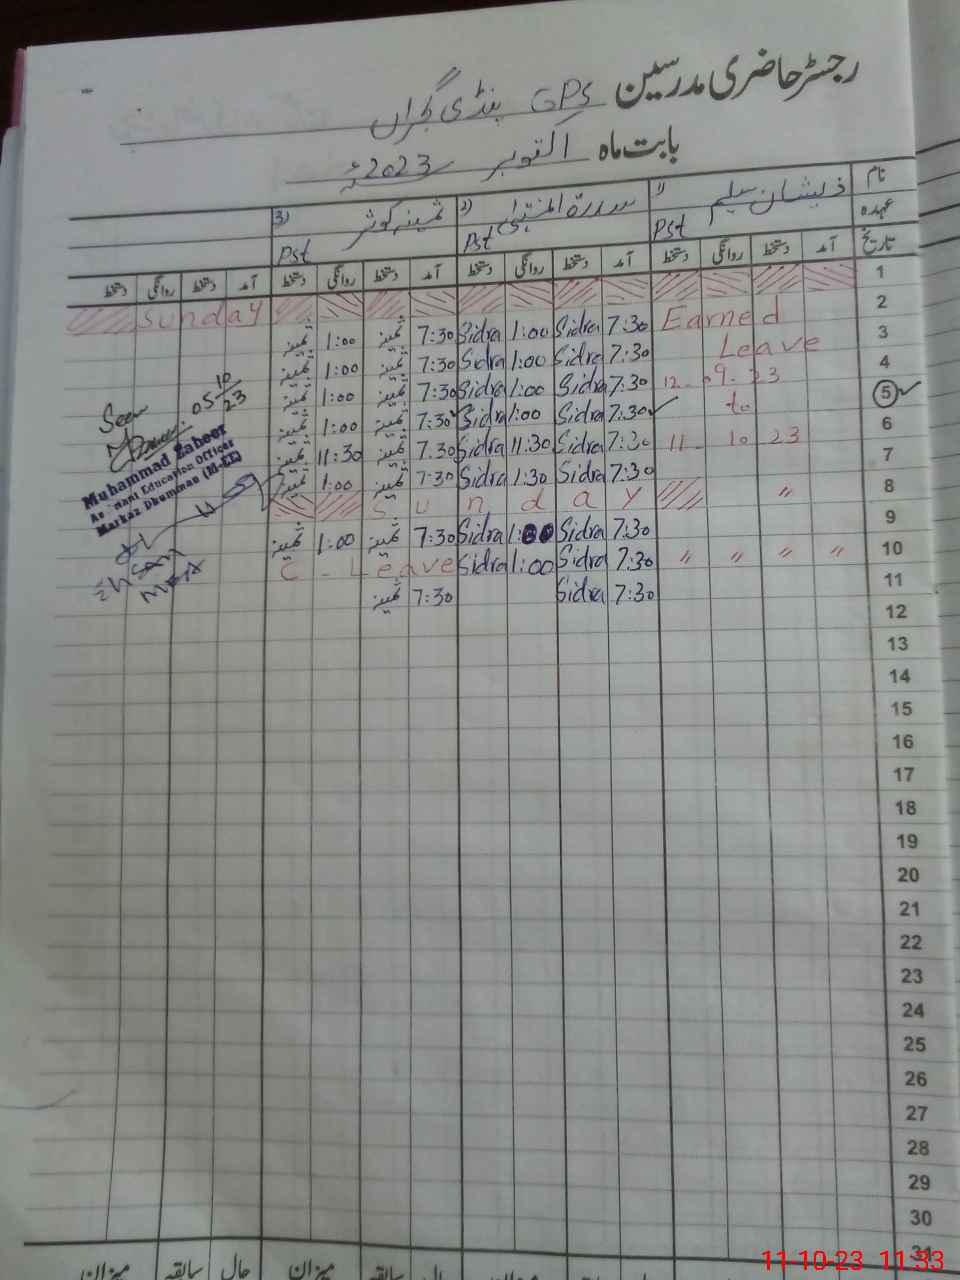 رجسٹر حاضری مدرسین GPS پنڈی گجراں
بابت ماہ اکتوبر 2023ء
نام ۱) ذیشان سلیم ۲) سدرۃ المنتہیٰ ۳) ثمینہ کوثر
عہدہ Pst Pst Pst
تاریخ آمد دستخط روانگی دستخط آمد دستخط روانگی دستخط آمد دستخط روانگی دستخط آمد دستخط روانگی دستخط
1 Sunday
2 Earned 7:30 Sidra 1:00 Sidra 7:30 ثمینہ 1:00 ثمینہ
3 Leave 7:30 Sidra 1:00 Sidra 7:30 ثمینہ 1:00 ثمینہ
4 12-09-23 7:30 Sidra 1:00 Sidra 7:30 ثمینہ 1:00 ثمینہ
5 to 7:30 Sidra 1:00 Sidra 7:30 ثمینہ 1:00 ثمینہ
6 11-10-23 7:30 Sidra 11:30 Sidra 7:30 ثمینہ 11:30 ثمینہ
7 7:30 Sidra 1:30 Sidra 7:30 ثمینہ 1:00 ثمینہ
8 〃 Sunday
9 7:30 Sidra 1:00 Sidra 7:30 ثمینہ 1:00 ثمینہ
10 〃 〃 〃 〃 7:30 Sidra 1:00 Sidra C-Leave
11 7:30 Sidra 7:30 ثمینہ
12
13
14
15
16
17
18
19
20
21
22
23
24
25
26
27
28
29
30
31
Seen
05/10/23
Muhammad Zaheer
Assistant Education Officer
Markaz Dhumman (M-EE)
Ehsan
MEA
میزان سابقہ حال میزان سابقہ حال میزان
11-10-23 11:33